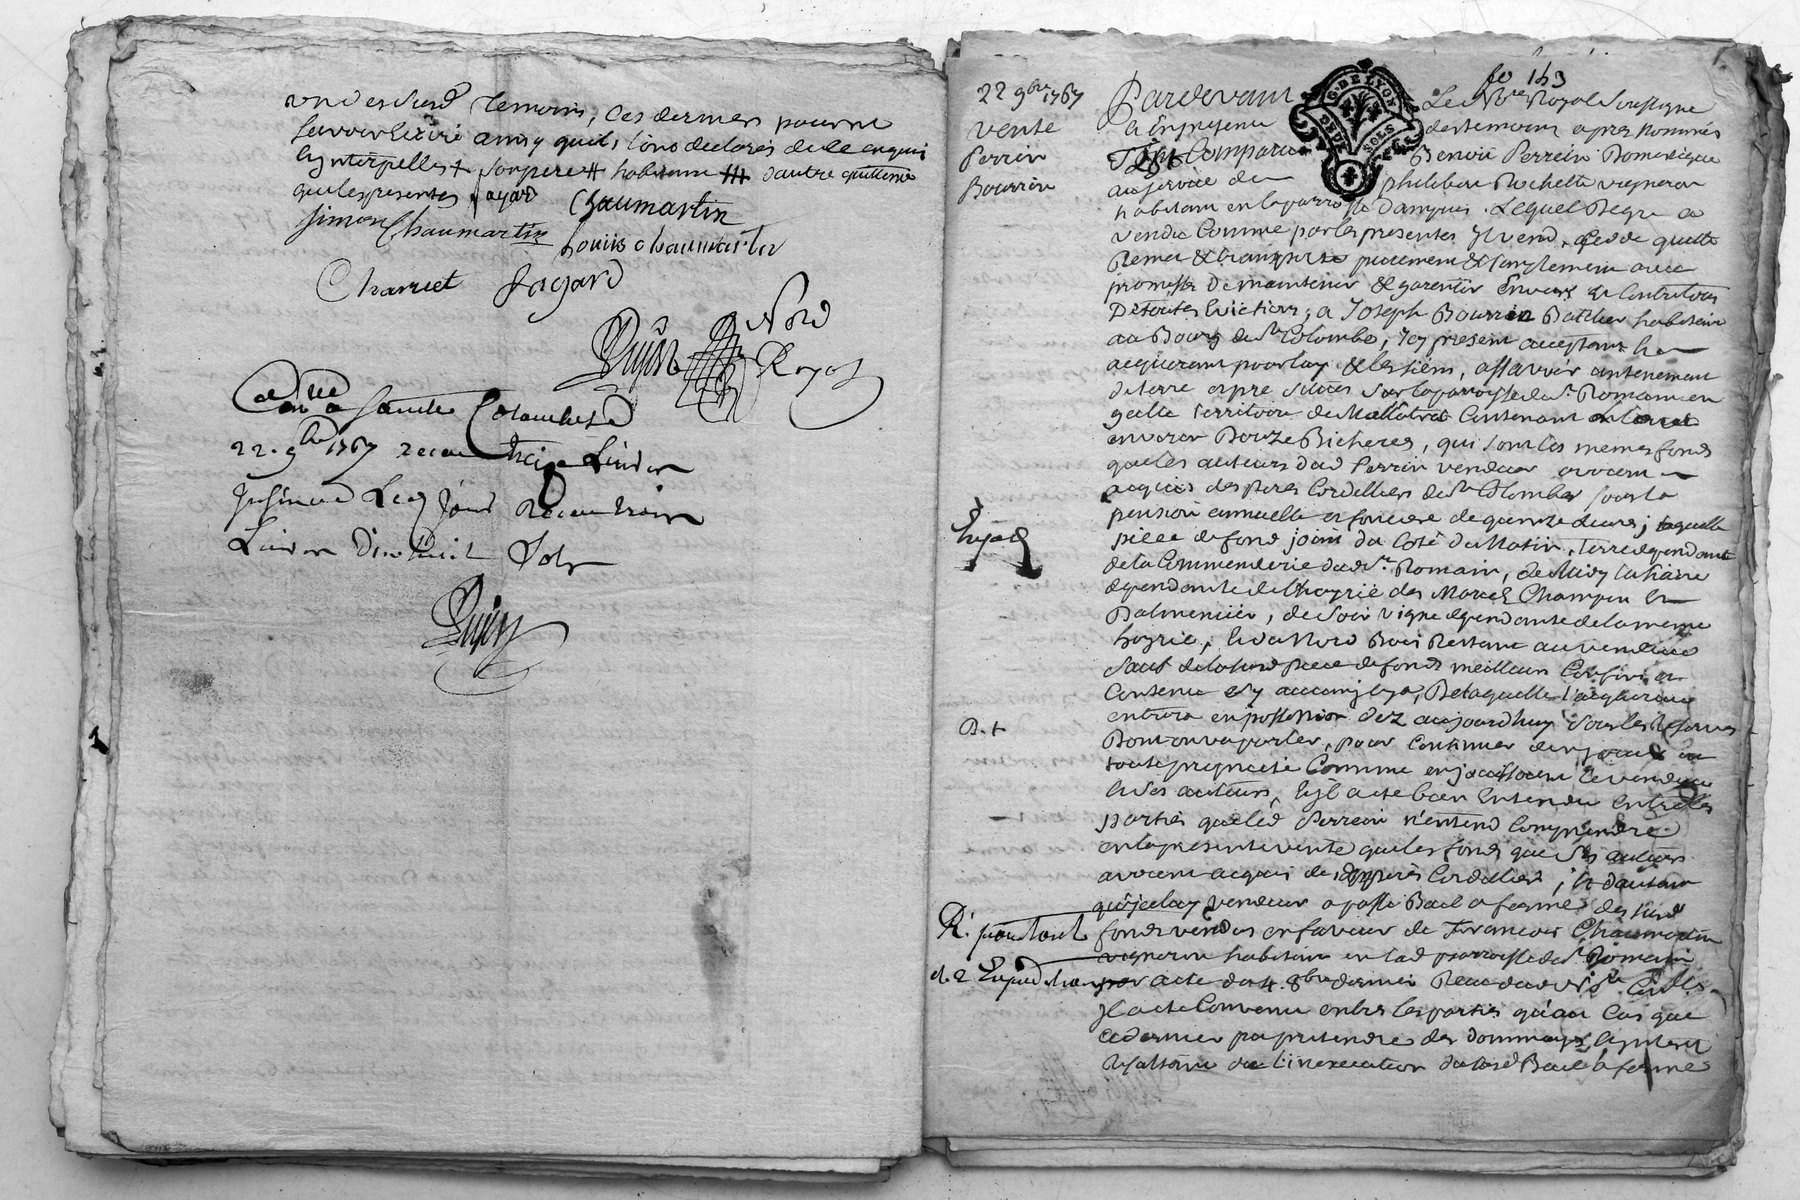 temoins, ces derniers pourne
scavoir Ecrire ainsy quils l'ont declarés de ce enquis
& interpellés + son pere # habitant ## d'autre
que les presentes
Chaumartin
Simon Chaumartin
Louis chaumartin
Charvet
Guyot
Nore
Royal
a Sainte Colombe Le
22. 9bre 1767 Recu treize Livres
Insinué Led Jour Recu trois
Livres Dixhuit Sols
Guyot
fo 143
22 9bre 1767
Vente
Perrin
Bourrin
G. DE LYON
DEUX SOLS
Pardevant Le Nre Royal Soussigné
et En presence des temoins apres Nommés
Est Comparu Benoit Perrein Domestique
au service de philibert Rochette vigneron
habitant en la parroisse d'ampuis. Lequel De gré a
vendu Comme par les presentes Il vend, cede quitte
Remet & transporte purement & simplement avec
promesse De maintenir & garentir Envers et Contre tous
De toutes Evictions, a Joseph Bourrin Battelier habitant
au Bourg de Ste Colombe, Icy present acceptant &
acquerant pour luy & les siens, assavoir un tenement
de terre et pré situés sur la parroisse de St Romain en
galle territoire de Contenant
environ Douze Bicherées, qui sont les memes fonds
que les auteurs dud Perrin vendeur avoient
acquis des peres Cordelliers de Ste Colombe sous la
pension annuelle et fonciere de quinze livres; laquelle
piece de fond joint du Coté du Matin, terre dependante
de la Commenderie dud St Romain, de Midy
dependante de l'hoyrie des Mariés Champin &
de Soir vigne dependante de la meme
hoyrie, & du Nord Bois Restant au vendeur
Sauf de lad piece de fonds meilleurs Confins et
Contenue s'il y en a, De laquelle l'acquereur
entrera en possession dez aujourdhuy sous les Reserves
R. +
Dont on va parler, pour Continuer d'en jouir en
toute proprieté Comme en jouissoient le vendeur
& ses auteurs, Il a eté bien Entendu entre les
parties que led Perrein n'entend Comprendre
en la presente vente que les fonds que ses auteurs
avoient acquis desd peres Cordelliers, et d'autant
qu'icelluy vendeur a passé Bail a ferme des susd
R. pour tout
fonds vendus en faveur de Francois Chaumartin
vigneron habitant en lad parroisse de St Romain
par acte du 4. 8bre dernier Recu
Il a eté Convenu entre les parties qu'au Cas que
ce dernier put pretendre des dommages interest
Resultants de l'inexecution dud Bail a ferme